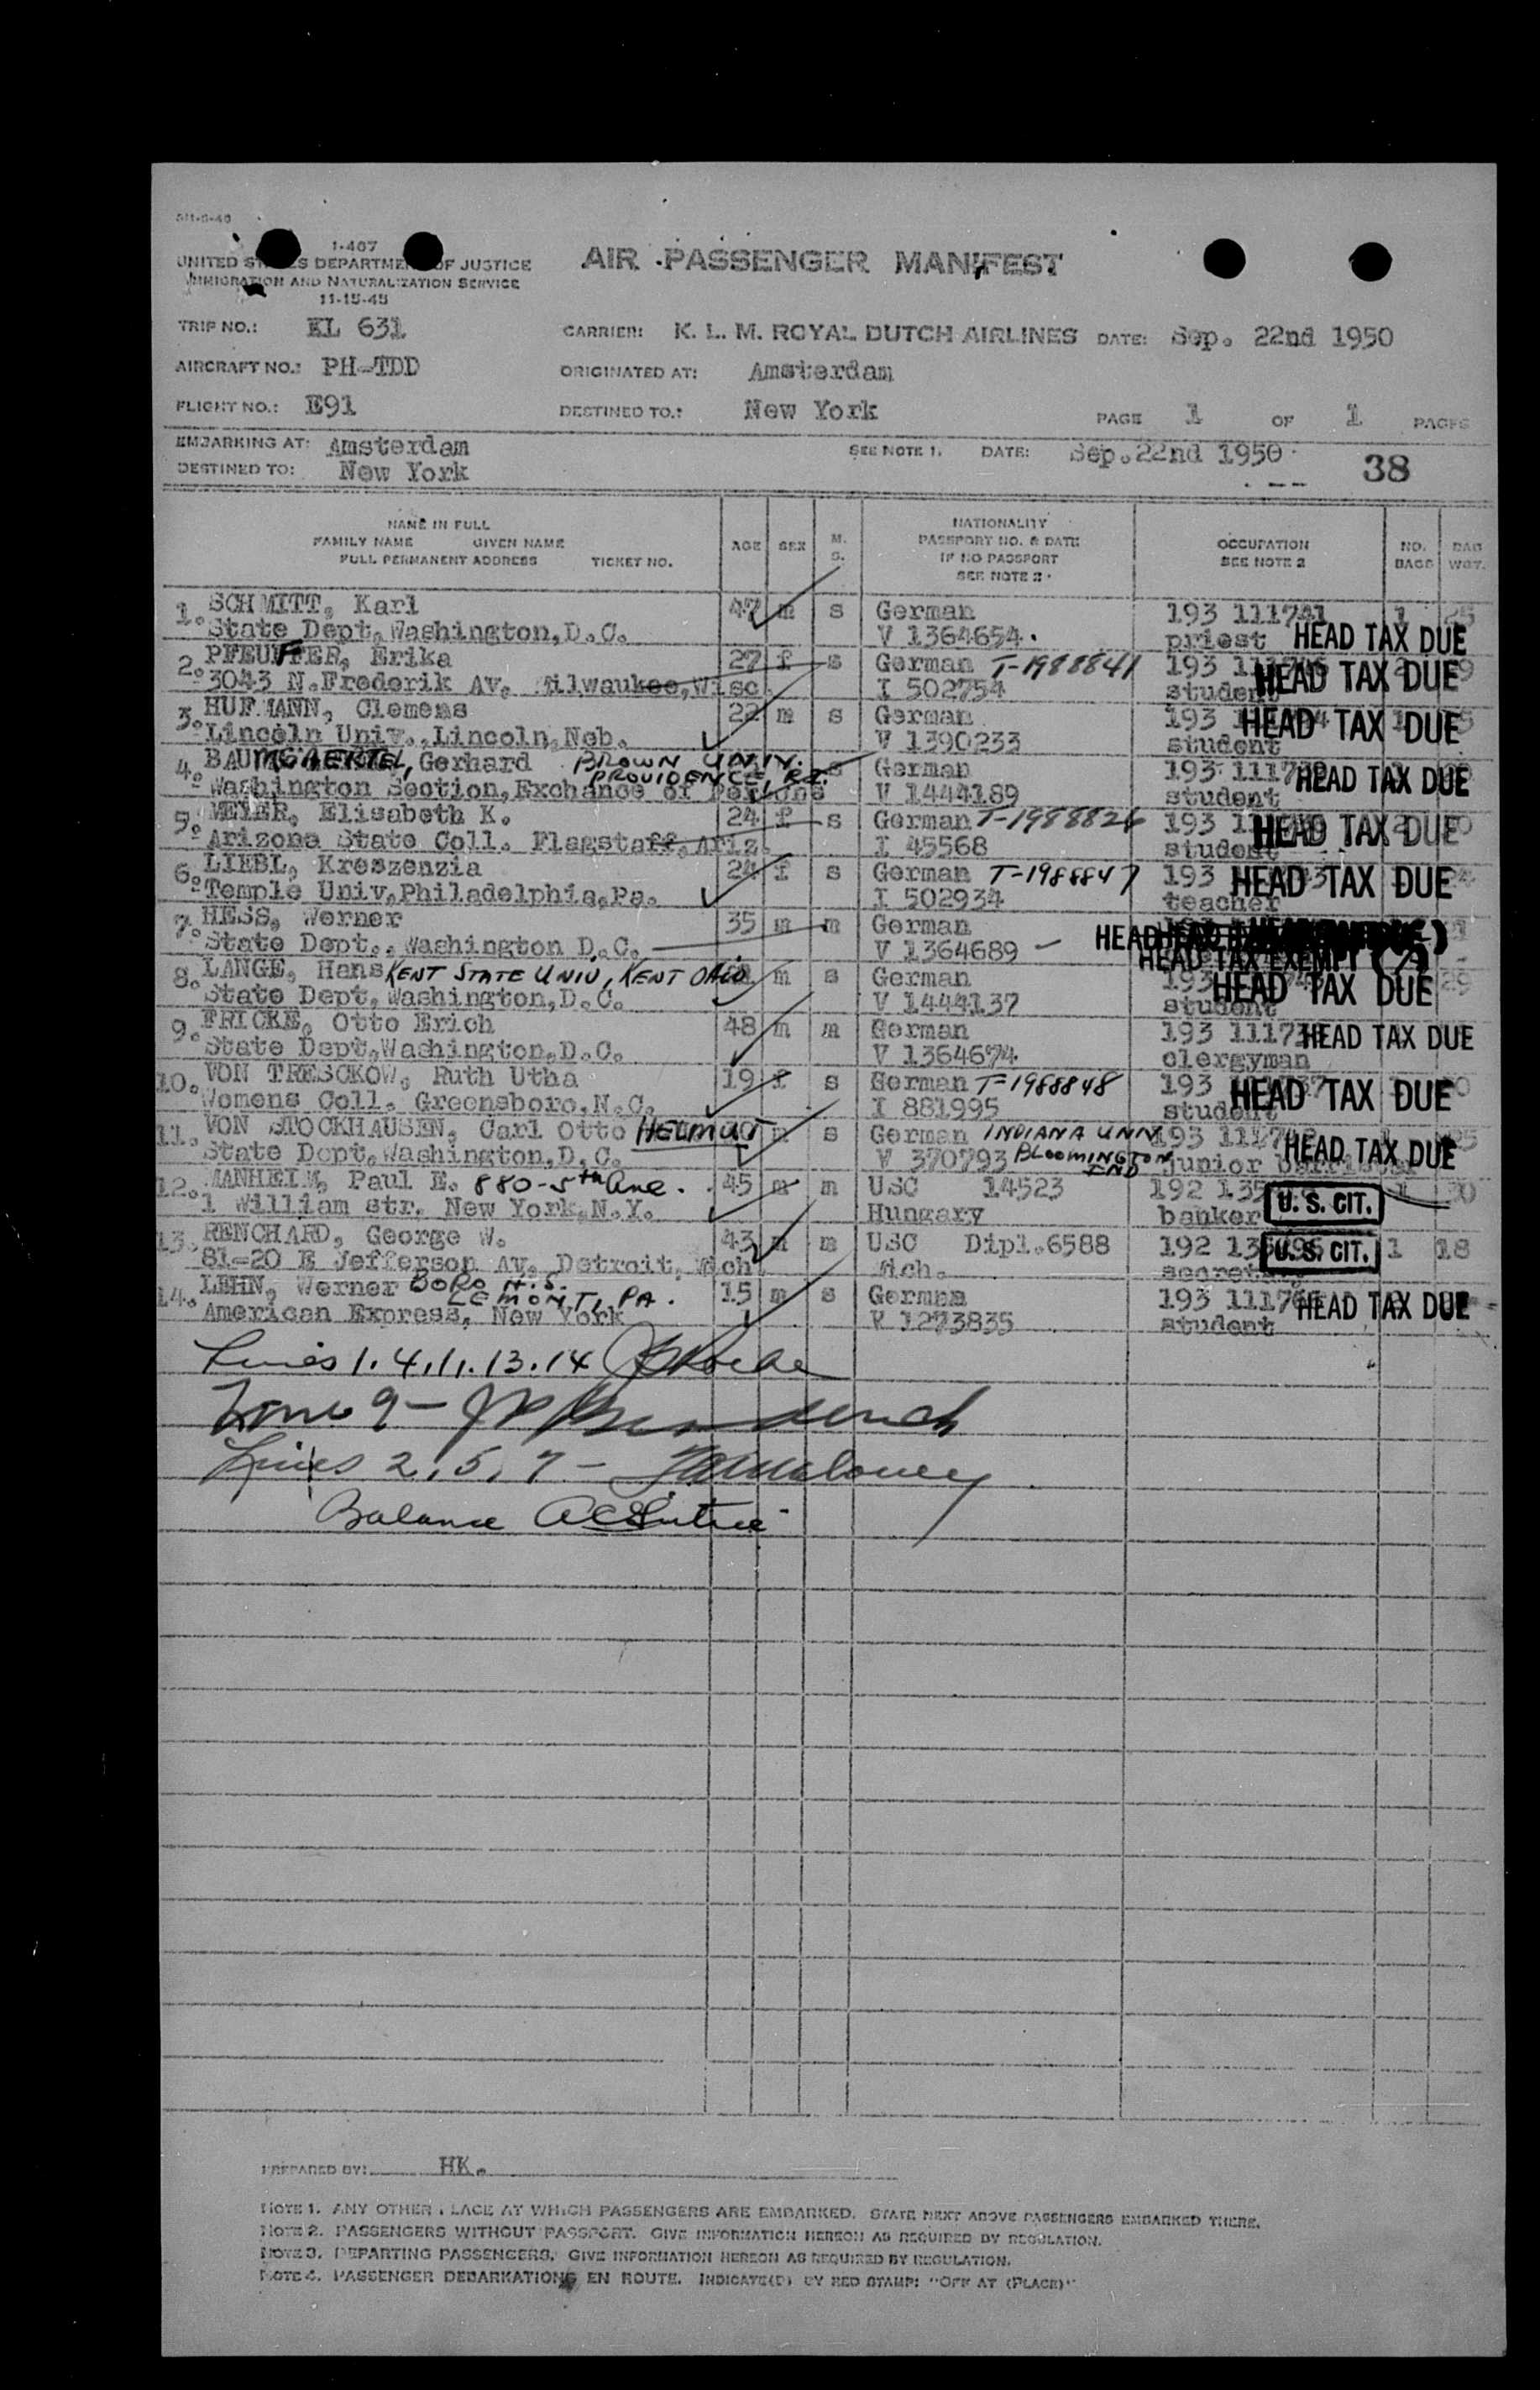 1-467
UNITED STATES DEPARTMENT OF JUSTICE
IMMIGRATION AND NATURALIZATION SERVICE
11-15-45
AIR PASSENGER MANIFEST
TRIP NO.: KL 631 CARRIER: K. L. M. ROYAL DUTCH AIRLINES DATE: Sep. 22nd 1950
AIRCRAFT NO.: PH-TDD ORIGINATED AT: Amsterdam
FLIGHT NO.: E91 DESTINED TO.: New York PAGE 1 OF 1 PAGES
EMBARKING AT: Amsterdam SEE NOTE 1. DATE: Sep.22nd 1950
DESTINED TO: New York 38
NAME IN FULL
FAMILY NAME GIVEN NAME
FULL PERMANENT ADDRESS TICKET NO.
AGE SEX M. S.
NATIONALITY
PASSPORT NO. & DATE
IF NO PASSPORT
SEE NOTE 2.
OCCUPATION
SEE NOTE 2
NO. BAGS BAG WGT.
1. SCHMITT, Karl 47 m s German 193 111741 1 25
State Dept.Washington,D.C. V 1364654. priest HEAD TAX DUE
2. PFEUFFER, Erika 27 f s German T-1988841 193 HEAD TAX DUE
3043 N.Frederik Av. Milwaukee,Wisc. I 502754 student
3. HUFMANN, Clemens 22 m s German 193 HEAD TAX DUE
Lincoln Univ.,Lincoln,Neb. V 1390233 student
4. BAUMGAERTEL, Gerhard BROWN UNIV. s German 193 HEAD TAX DUE
PROVIDENCE, RI.
Washington Section,Exchance of Persons V 1444189 student
5. MEIER, Elisabeth K. 24 f s German T-1988826 193 HEAD TAX DUE
Arizona State Coll. Flagstaff,Ariz. I 45568 student
6. LIEBL, Kreszenzia 24 f s German T-1988847 193 HEAD TAX DUE
Temple Univ.Philadelphia,Pa. I 502934 teacher
7. HESS, Werner 35 m m German
State Dept., Washington D.C. V 1364689 - HEAD TAX EXEMPT
8. LANGE, Hans KENT STATE UNIV, KENT OHIO m s German 193 HEAD TAX DUE 29
State Dept,Washington,D.C. V 1444137 student
9. FRICKE, Otto Erich 48 m m German 193 HEAD TAX DUE
State Dept,Washington,D.C. V 1364674 clergyman
10. VON TRESCKOW, Ruth Utha 19 f s German T-1988848 193 HEAD TAX DUE
Womens Coll. Greensboro,N.C. I 881995 student
11. VON STOCKHAUSEN, Carl Otto HELMUT s German INDIANA UNIV 193 HEAD TAX DUE
State Dept.Washington,D.C. V 370793 BLOOMINGTON IND junior barrister
12. MANHEIM, Paul E. 880-5th Ave. 45 m m USC 14523 192 U. S. CIT.
1 William str. New York,N.Y. Hungary banker
13. RENCHARD, George W. 43 m m USC Dipl.6588 192 U. S. CIT. 1 18
81-20 E Jefferson Av. Detroit, Mich. Mich.
14. LEHN, Werner BORO H.S. 15 m s German 193 HEAD TAX DUE
LEMONT, PA.
American Express, New York V 1273835 student
Lines 1.4.11.13.14
Line 9 -
Lines 2,5,7 -
Balance
PREPARED BY: HK.
NOTE 1. ANY OTHER PLACE AT WHICH PASSENGERS ARE EMBARKED. STATE NEXT ABOVE PASSENGERS EMBARKED THERE.
NOTE 2. PASSENGERS WITHOUT PASSPORT. GIVE INFORMATION HEREON AS REQUIRED BY REGULATION.
NOTE 3. DEPARTING PASSENGERS. GIVE INFORMATION HEREON AS REQUIRED BY REGULATION.
NOTE 4. PASSENGER DEBARKATIONS EN ROUTE. INDICATE(D) BY RED STAMP: "OFF AT (PLACE)"